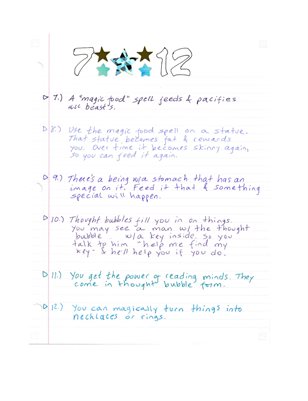 7 12
7.) A "magic food" spell feeds & pacifies
all beast's.
8.) Use the magic food spell on a statue.
That statue becomes fat & rewards
you. Over time it becomes skinny again,
so you can feed it again.
9.) There's a being w/a stomach that has an
image on it. Feed it that & something
special will happen.
10.) Thought bubbles fill you in on things.
You may see a man w/ the thought
bubble w/a key inside. So you
talk to him "help me find my
key" & he'll help you if you do.
11.) You get the power of reading minds. They
come in thought bubble form.
12.) You can magically turn things into
necklaces or rings.